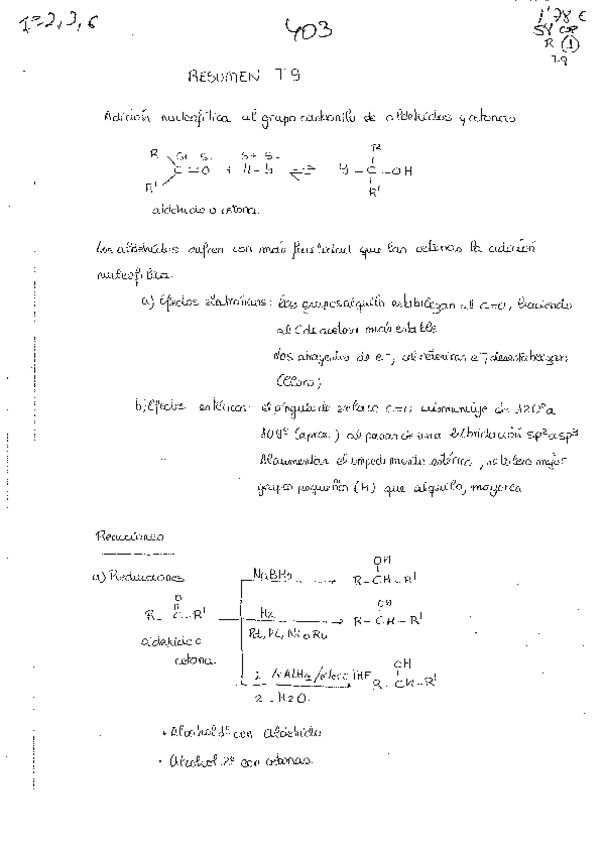 403
1'78 €
RESUMEN T9
Adición nucleofílica al grupo carbonilo de aldehídos y cetonas
R δ+ δ- δ+ δ- R
C=O + H-Y ⇌ Y-C-OH
R' R'
aldehído o cetona.
Los aldehídos sufren con más facilidad que las cetonas la adición
nucleofílica.
a) Efectos electrónicos: los grupos alquilo estabilizan al C=O, haciendo
al C de más estable
(Cloro)
b) Efectos estéricos: el ángulo de enlace C=O disminuye de 120º a
109º (aprox.) al pasar de una hibridación sp² a sp³
Al aumentar el impedimento estérico, se tolera mejor
grupos pequeños (H) que alquilo, mayores
Reacciones
a) Reducciones
OH
NaBH4 R-CH-R'
O OH
R-C-R' H2 R-CH-R'
aldehído o Pd, Pt, Ni o Ru
cetona. OH
1. LiAlH4/éter o THF R-CH-R'
2. H2O.
· Alcohol 1º con Aldehído
· Alcohol 2º con cetonas.